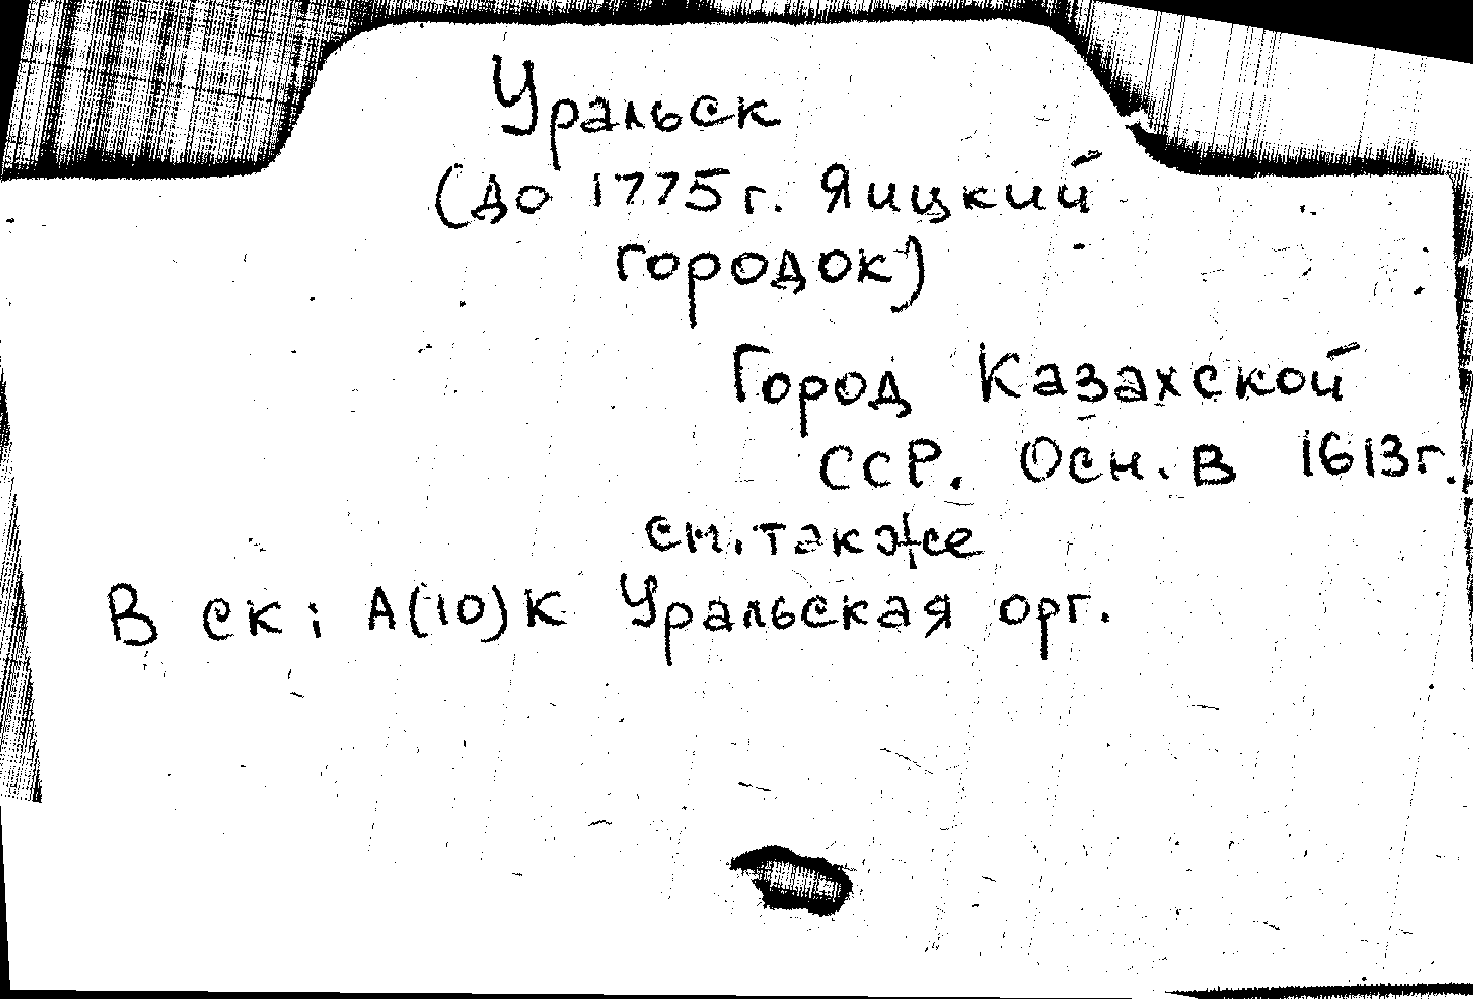 Уральск
(до 1775 г. Яицкий
городок)
Город Казахской
ССР. Осн. в 1613 г.
см. также
В ск: А(10)К Уральская орг.